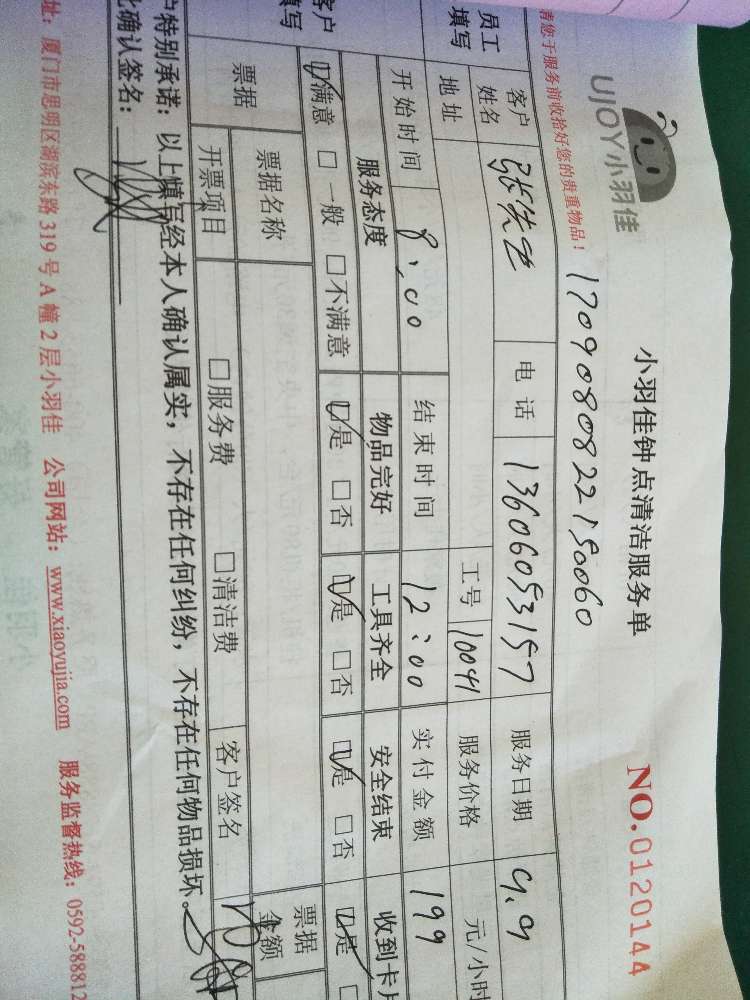 UJOY小羽佳
小羽佳钟点清洁服务单
NO.0120144
1709080822150060
请您于服务前收拾好您的贵重物品！
员工填写
客户姓名 张先生 电话 13606053157 服务日期 9.9
地址 工号 10041 服务价格 元/小时
开始时间 8:00 结束时间 12:00 实付金额 199
客户填写
服务态度 物品完好 工具齐全 安全结束 收到卡片
☑满意 □一般 □不满意 ☑是 □否 ☑是 □否 ☑是 □否 ☑是 □
票据 票据名称 票据金额
开票项目 □服务费 □清洁费 客户签名
户特别承诺：以上填写经本人确认属实，不存在任何纠纷，不存在任何物品损坏。
此确认签名：
址：厦门市思明区湖滨东路319号A幢2层小羽佳 公司网站：www.xiaoyujia.com 服务监督热线：0592-588812